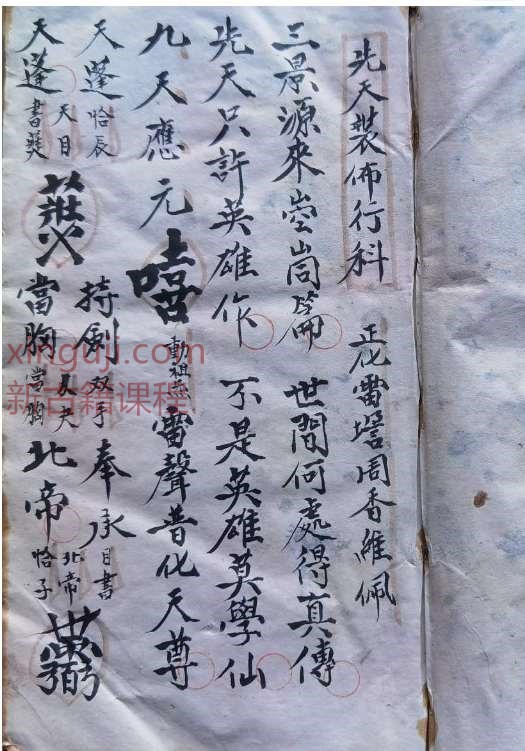 先天裝佈行科 正化雷壇周香維佩
三景源來崆峒篇 世間何處得真傳
先天只許英雄作 不是英雄莫學仙
九天應元嘻動祖炁雷聲普化天尊
天蓬恰辰天目持劍双手奉承目書北帝
天蓬書當胸當胸北帝恰子
xinguji.com
新古籍课程